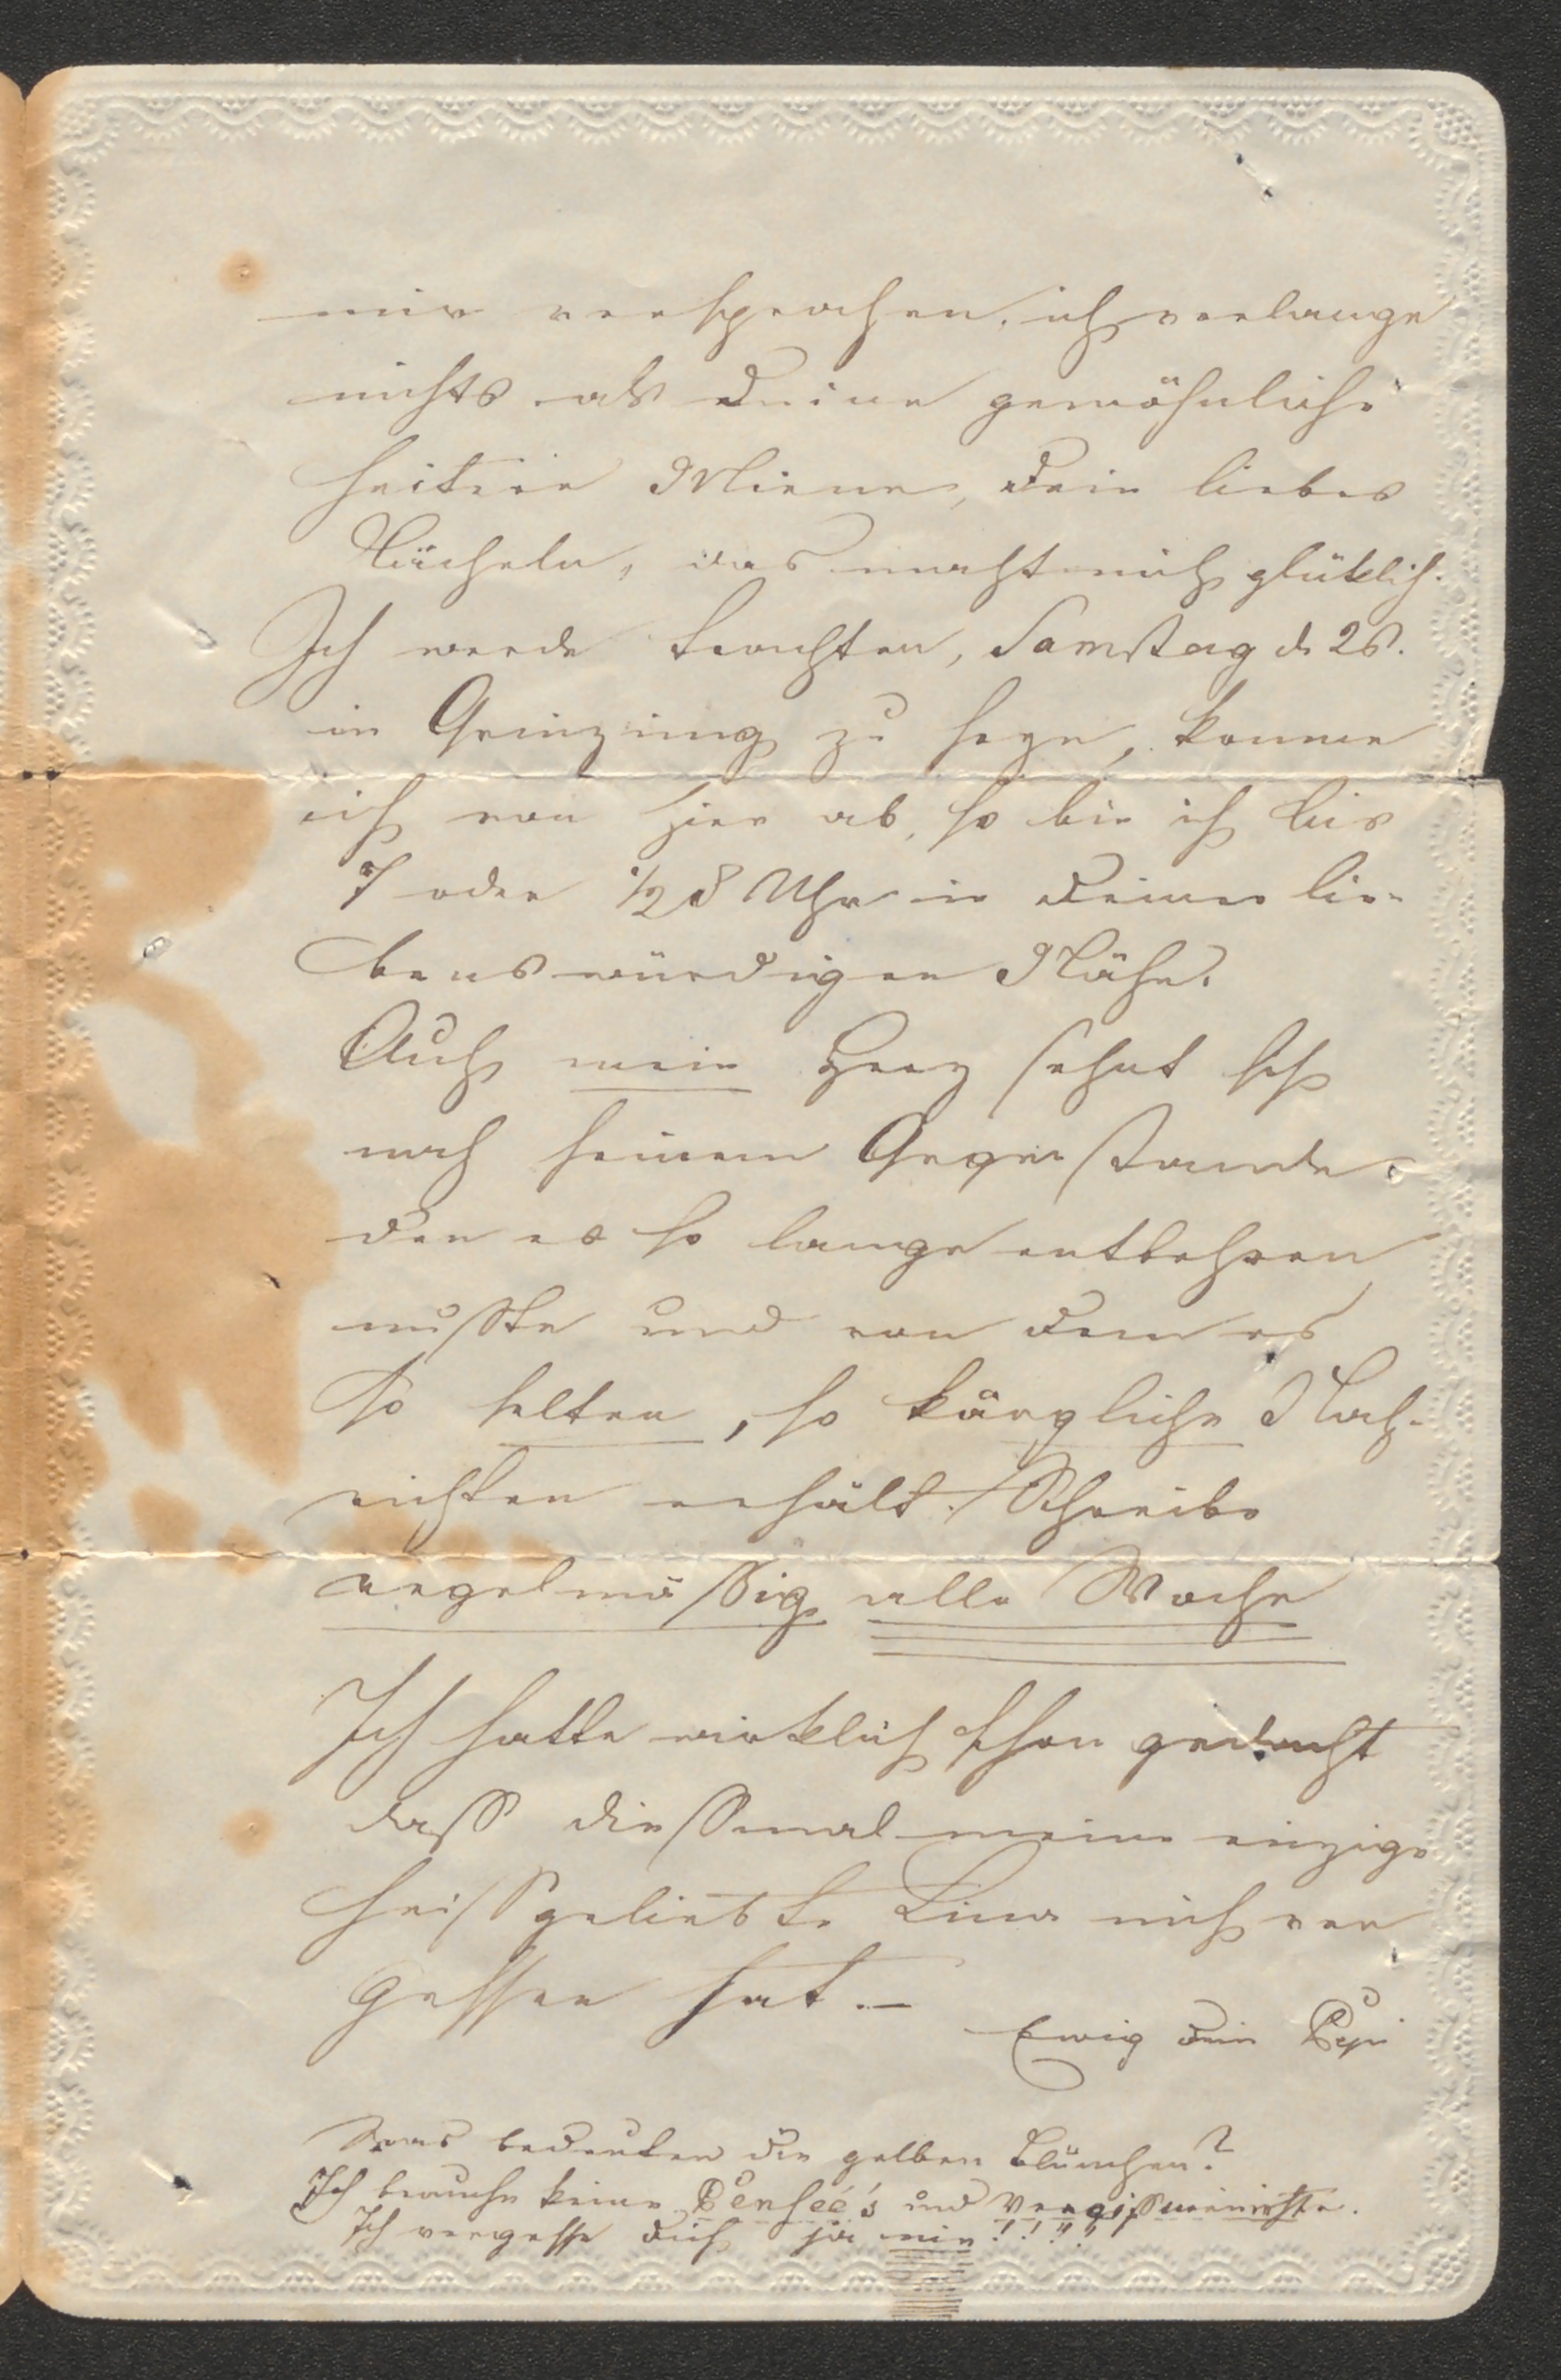 mir versprochen, ich verlange
nichts als Deine gewöhnliche
heitere Miene, Dein liebes
Lächeln, das macht mich glüklich.
Ich werde trachten, Samstag d. 26.
in Grinzing zu seyn, komme
ich von hier ab, so bin ich bis
7 oder ½8 Uhr in Deiner lie-
benswürdigen Nähe.
Auch mein Herz sehnt sich
nach seinem Gegenstande,
den es so lange entbehren
mußte und von dem es
so selten, so kärgliche Nach-
richten erhält. Schreibe
regelmäßig alle Woche
Ich hatte wirklich schon gedacht
daß dießmal meine einzige
heißgeliebte Lina mich ver
gessen hat. —
Ewig Dein Pepi
Was bedeuten die gelben Blümchen?
Ich brauche keine Penseé's und Vergißmeinichte.
Ich vergesse Dich ja nie!!!!!